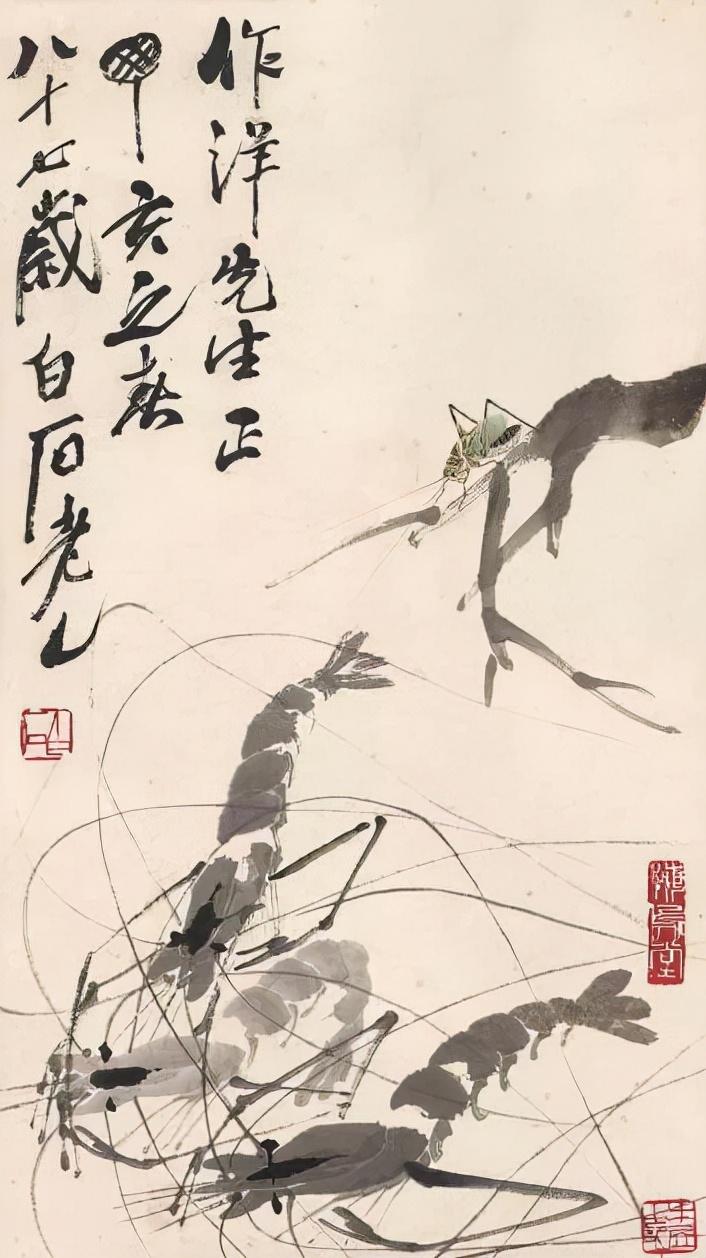 作洋先生正
丁亥之春
八十七歲白石老人